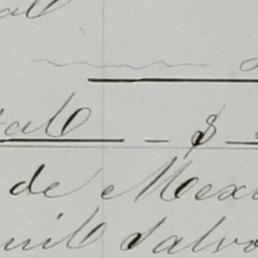 al
tal — $
de Mexi
mil Salvo